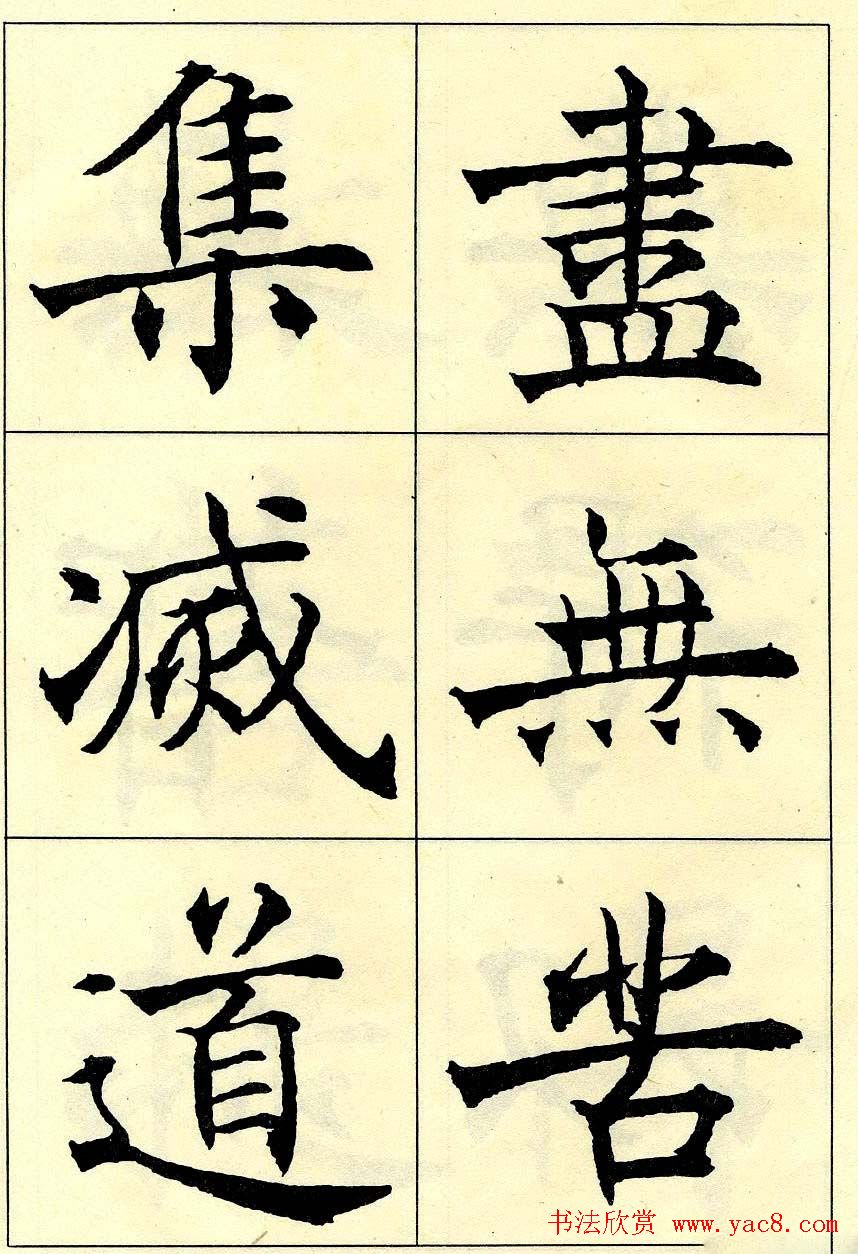 盡無苦
集滅道
书法欣赏 www.yac8.com